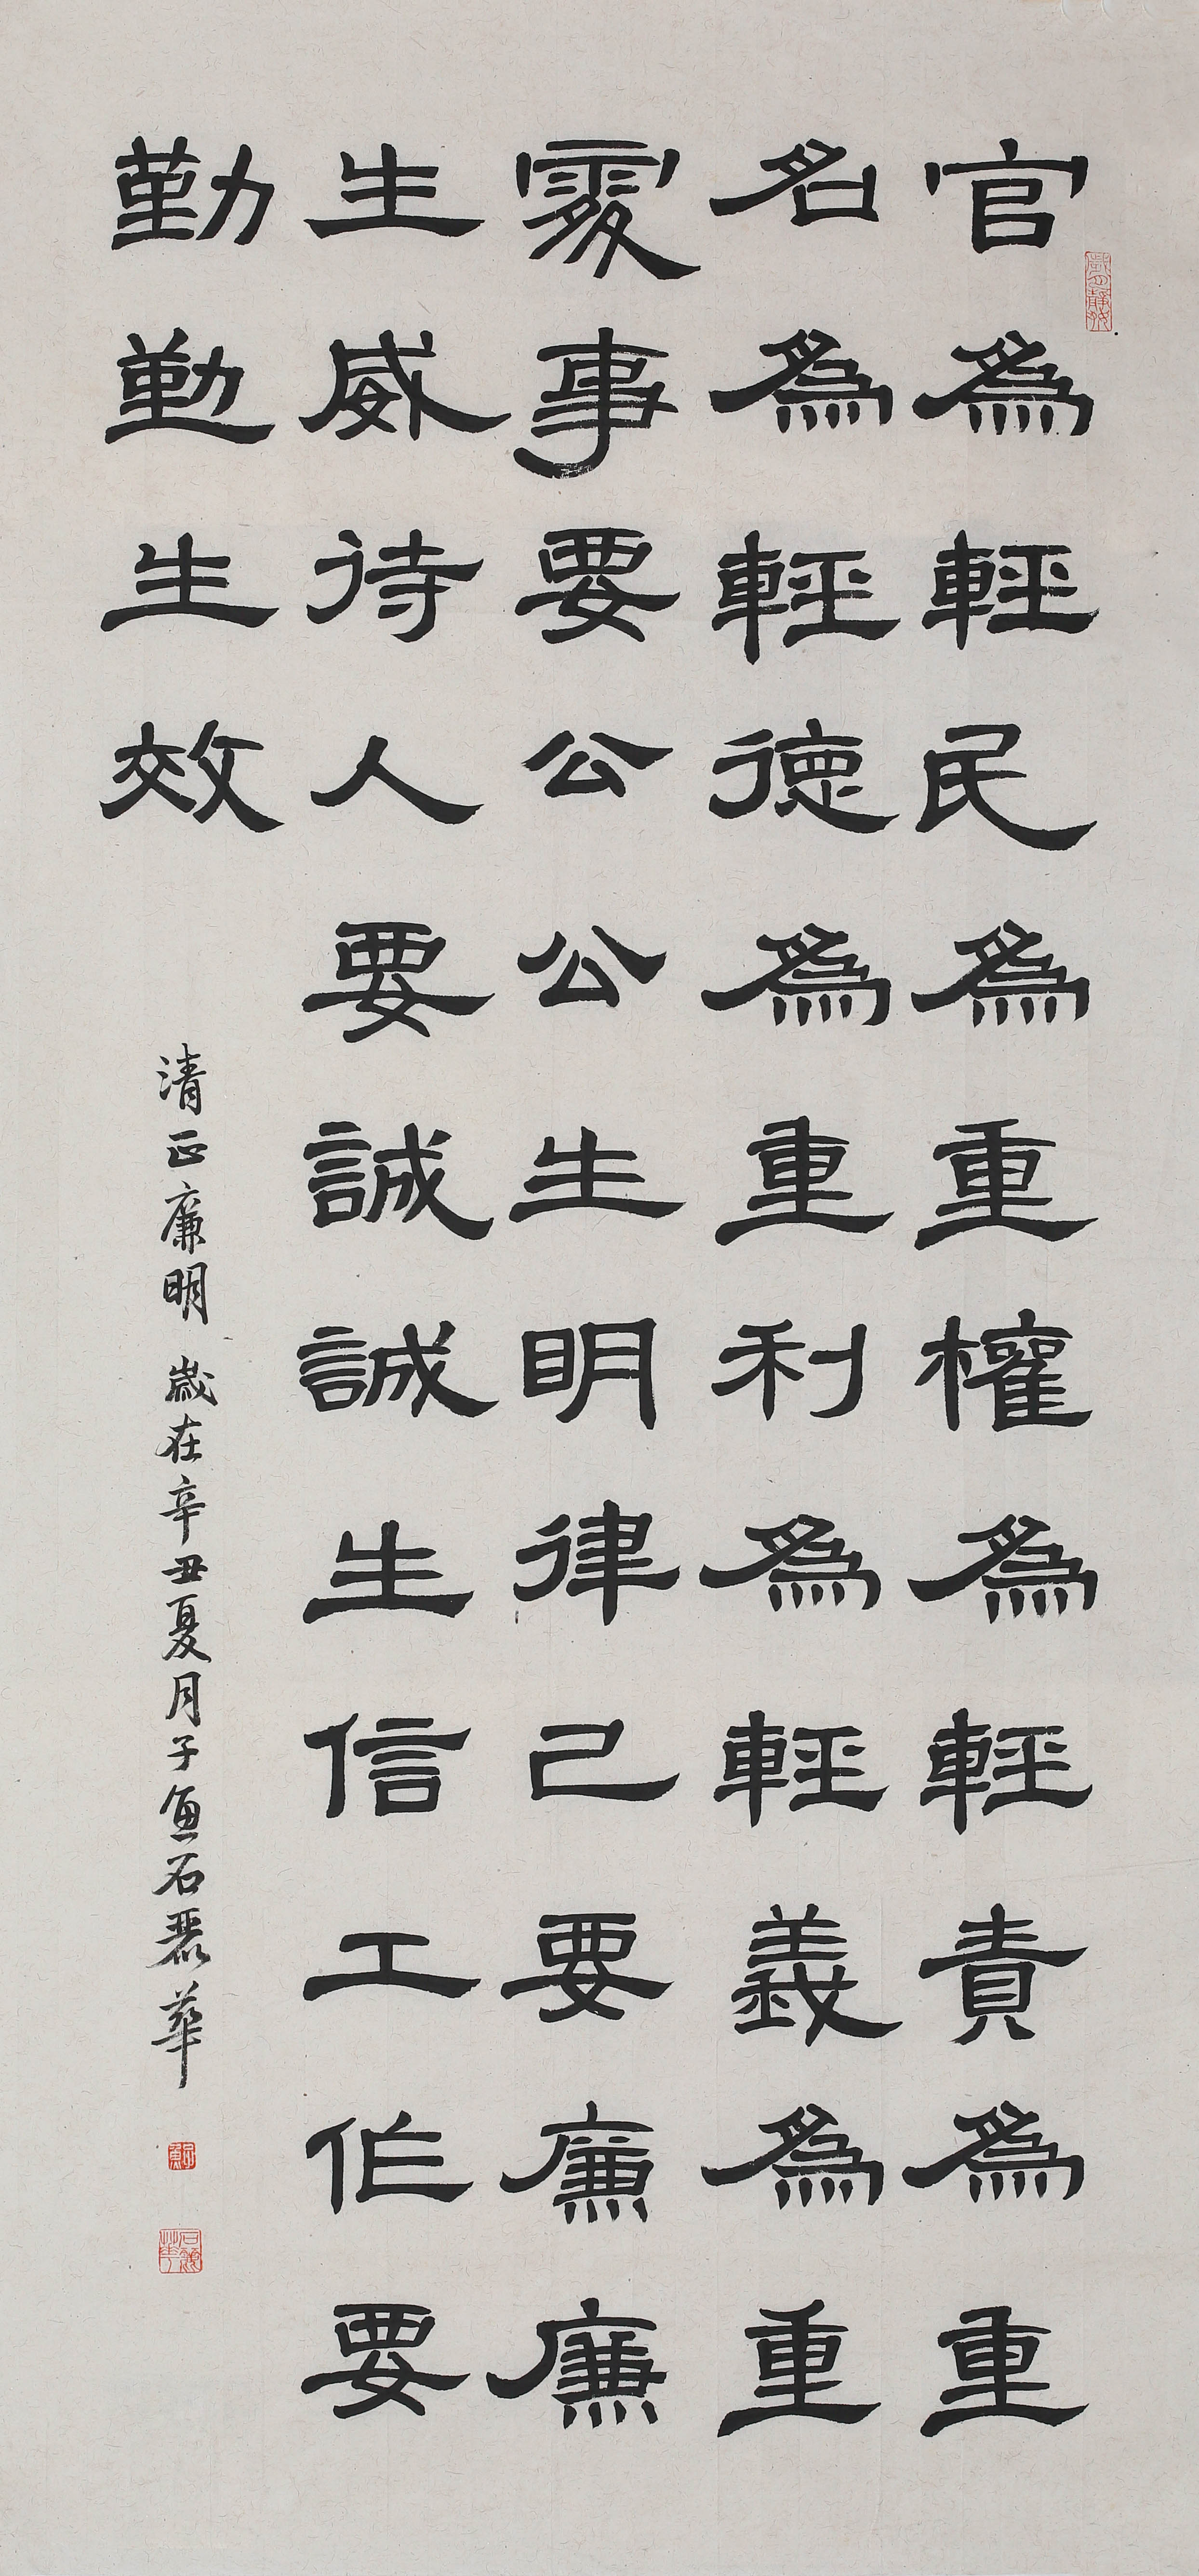 官為輕民為重權為輕責為重
名為輕德為重利為輕義為重
處事要公公生明律己要廉廉
生威待人要誠誠生信工作要
勤勤生效
清正廉明 歲在辛丑夏月子魚石麗華